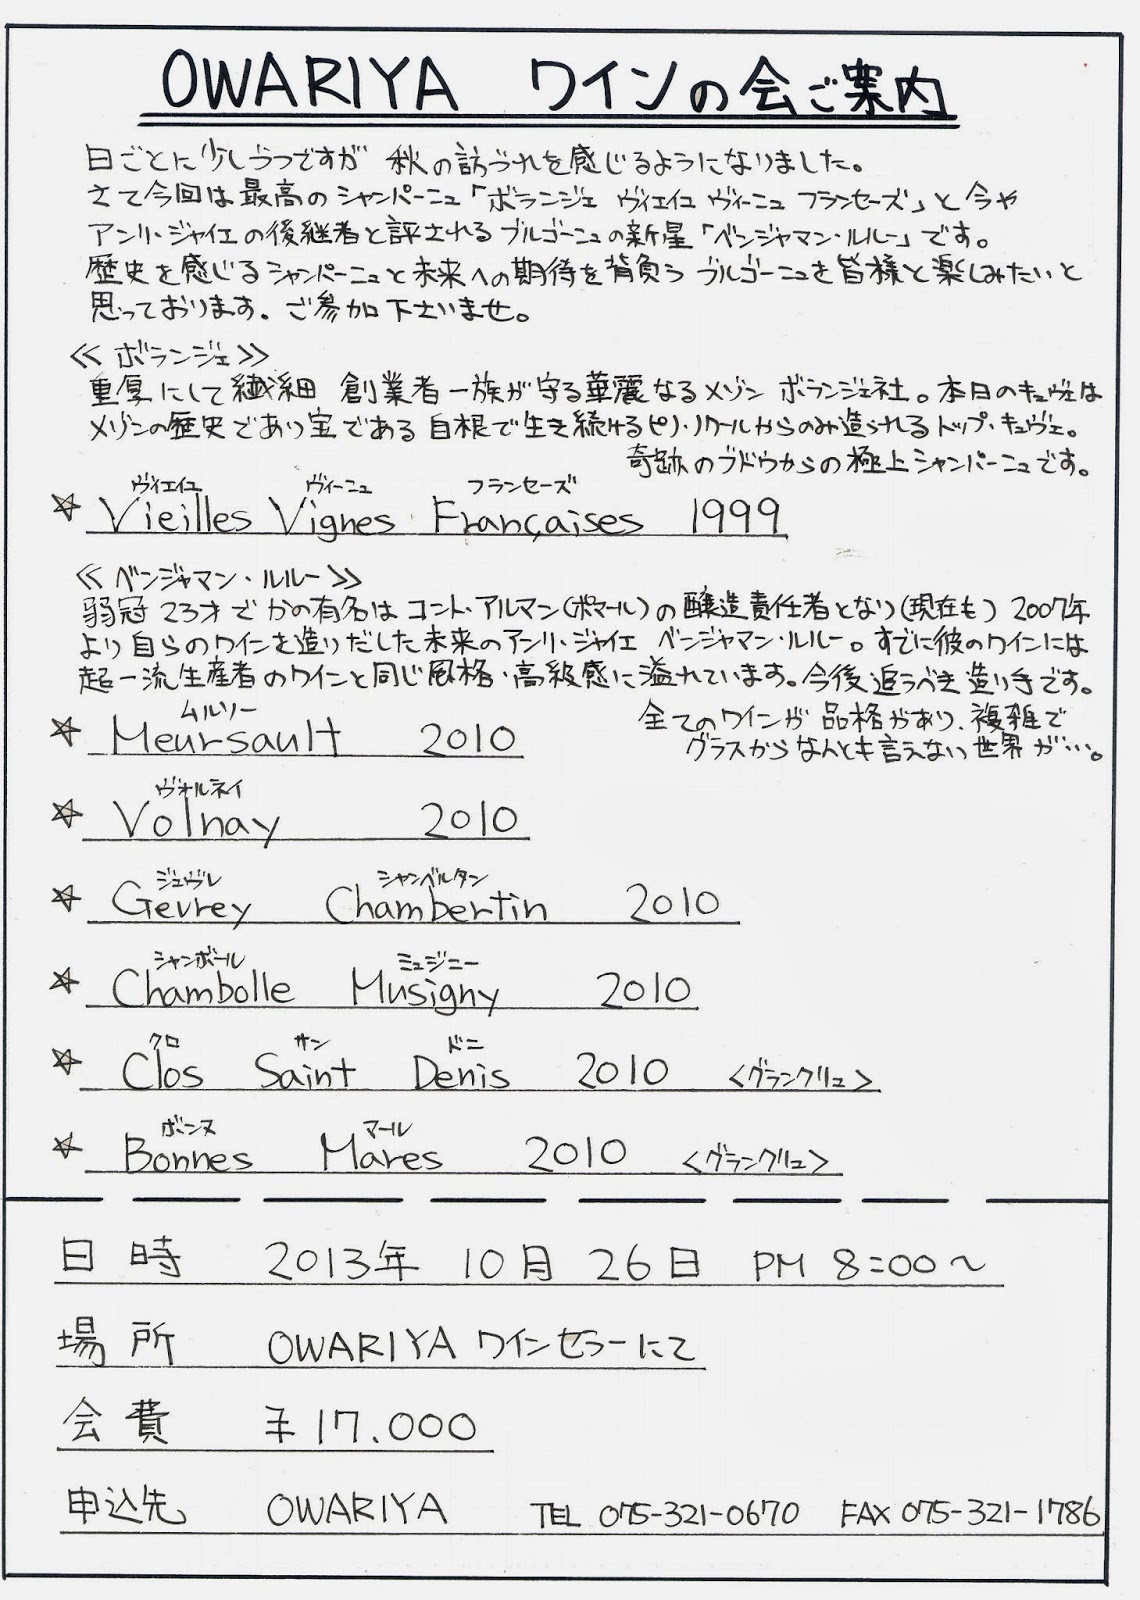 OWARIYA ワインの会ご案内
日ごとに少しづつですが 秋の訪づれを感じるようになりました。
さて今回は最高のシャンパーニュ「ボランジェ ヴィエイユ ヴィーニュ フランセーズ」と今や
アンリ・ジャイエの後継者と評されるブルゴーニュの新星「ベンジャマン・ルルー」です。
歴史を感じるシャンパーニュと未来への期待を背負う ブルゴーニュを皆様と楽しみたいと
思っております。ご参加下さいませ。
≪ボランジェ≫
重厚にして繊細 創業者一族が守る華麗なるメゾン ボランジェ社。本日のキュヴェは
メゾンの歴史であり宝である自根で生き続けるピノ・ノワールからのみ造られるトップ・キュヴェ。
奇跡のブドウからの極上シャンパーニュです。
ヴィエイユ ヴィーニュ フランセーズ
☆ Vieilles Vignes Françaises 1999
≪ベンジャマン・ルルー≫
弱冠23才でかの有名はコント・アルマン(ポマール)の醸造責任者となり(現在も)2007年
より自らのワインを造りだした未来のアンリ・ジャイエ ベンジャマン・ルルー。すでに彼のワインには
超一流生産者のワインと同じ風格・高級感に溢れています。今後追うべき造り手です。
全てのワインが品格があり、複雑で
グラスからなんとも言えない世界が…。
ムルソー
☆ Meursault 2010
ヴォルネイ
☆ Volnay 2010
ジュヴレ シャンベルタン
☆ Gevrey Chambertin 2010
シャンボール ミュジニー
☆ Chambolle Musigny 2010
クロ サン ドニ
☆ Clos Saint Denis 2010 <グランクリュ>
ボンヌ マール
☆ Bonnes Mares 2010 <グランクリュ>
日時 2013年 10月 26日 PM 8:00〜
場所 OWARIYA ワインセラーにて
会費 ¥17.000
申込先 OWARIYA TEL 075-321-0670 FAX 075-321-1786